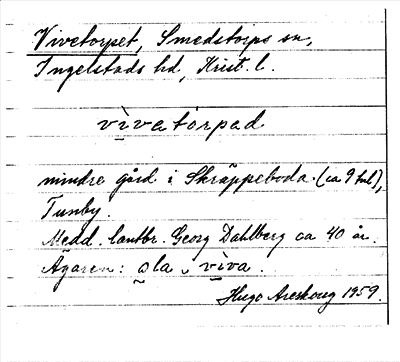 Vivetorpet, Smedstorps sn,
Ingelstads hd, Krist. l.
vìvatårpad
mindre gård i Skräppeboda (ca 9 tnl),
Tunby.
Medd. lantbr. Georg Dahlberg ca 40 år.
Ägaren: ola i vìva.
Hugo Areskoug 1959.